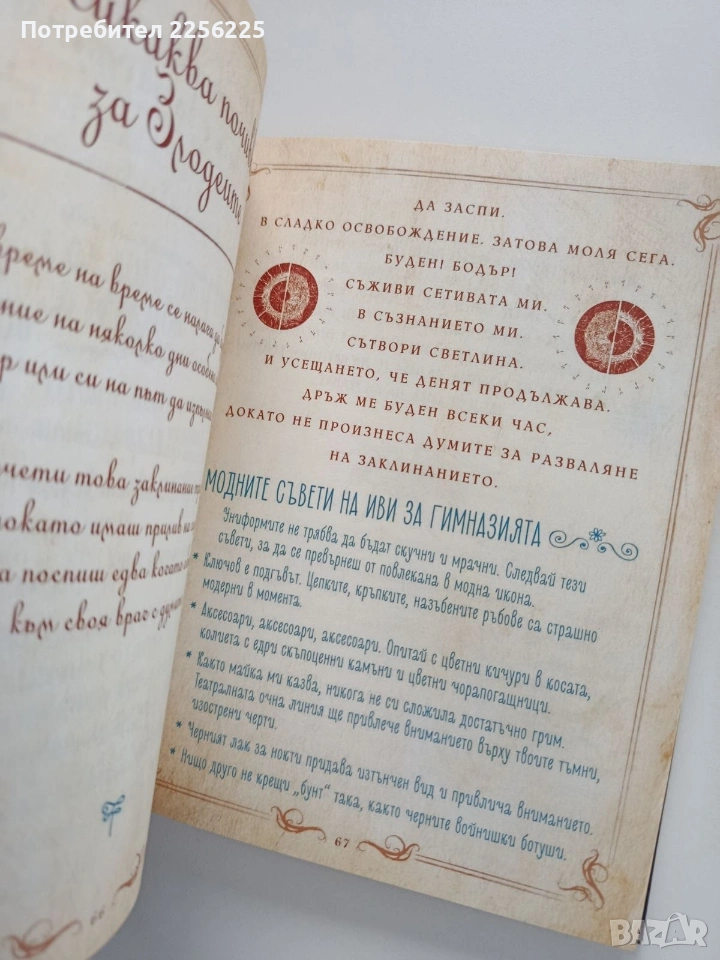 Потребител 2256225
за Злодеите
време на време се налага да
на няколко дни
или си на път да
това заклинание
докато имаш прилив на
поспиш едва когато
към своя враг с
66
ДА ЗАСПИ.
В СЛАДКО ОСВОБОЖДЕНИЕ. ЗАТОВА МОЛЯ СЕГА.
БУДЕН! БОДЪР!
СЪЖИВИ СЕТИВАТА МИ.
В СЪЗНАНИЕТО МИ.
СЪТВОРИ СВЕТЛИНА.
И УСЕЩАНЕТО, ЧЕ ДЕНЯТ ПРОДЪЛЖАВА.
ДРЪЖ МЕ БУДЕН ВСЕКИ ЧАС,
ДОКАТО НЕ ПРОИЗНЕСА ДУМИТЕ ЗА РАЗВАЛЯНЕ
НА ЗАКЛИНАНИЕТО.
МОДНИТЕ СЪВЕТИ НА ИВИ ЗА ГИМНАЗИЯТА
Униформите не трябва да бъдат скучни и мрачни. Следвай тези
съвети, за да се превърнеш от повлекана в модна икона.
* Ключов е подгъвът. Цепките, кръпките, назъбените ръбове са страшно
модерни в момента.
* Аксесоари, аксесоари, аксесоари. Опитай с цветни кичури в косата,
колиета с едри скъпоценни камъни и цветни чорапогащници.
* Както майка ми казва, никога не си сложила достатъчно грим.
Театралната очна линия ще привлече вниманието върху твоите тъмни,
изострени черти.
* Черният лак за нокти придава изтънчен вид и привлича вниманието.
* Нищо друго не крещи „бунт“ така, както черните войнишки ботуши.
67
BAZAR